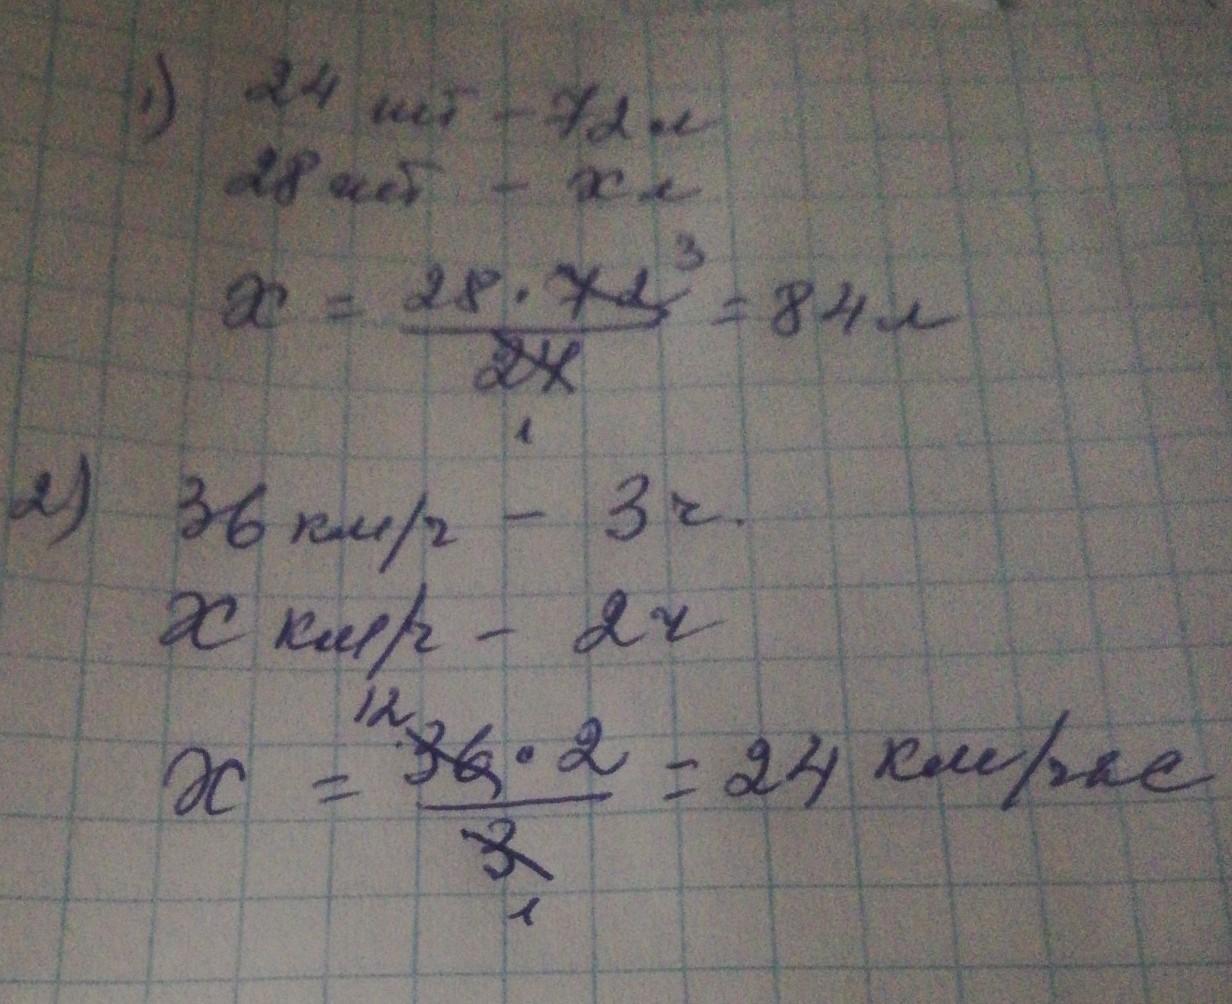 1) 24 шт - 72 л
28 шт - x л
x = 28 · 72 3 / 24 1 = 84 л
2) 36 км/ч - 3 ч.
x км/ч - 2 ч
x = 12 36 · 2 / 3 1 = 24 км/час